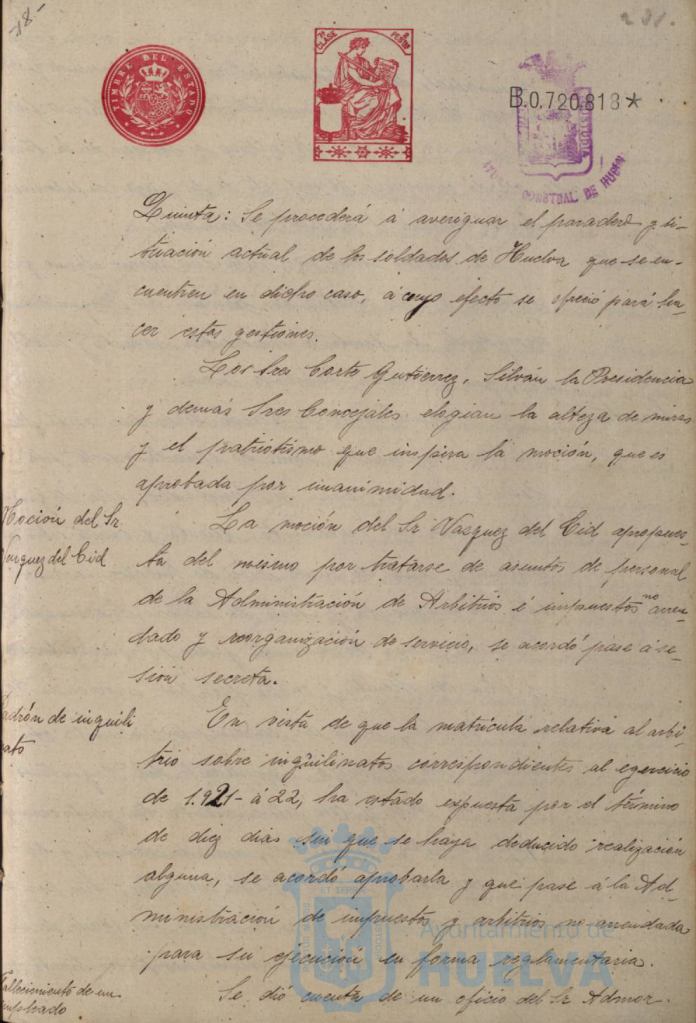 -18-
231.
TIMBRE DEL ESTADO
7ª CLASE
B.0.720.818*
CONSTNAL DE HUELVA
Quinta: Se procederá á averiguar el paradero y si-
tuación actual de los soldados de Huelva que se en-
cuentren en dicho caso, á cuyo efecto se ofreció para ha-
cer estas gestiones.
Los Sres Corte Gutierrez, Silván la Presidencia
y demás Sres Concejales elogian la alteza de miras
y el patriotismo que inspira la moción, que es
aprobada por unanimidad.
Moción del Sr
Vazquez del Cid
La moción del Sr Vazquez del Cid a propues-
ta del mismo por tratarse de asuntos de personal
de la Administración de Arbitrios é impuestos no arren-
dado y reorganización de servicio, se acordó pase á se-
sión secreta.
Padrón de inquili
nato
En vista de que la matrícula relativa al arbi-
trio sobre inquilinatos correspondientes al egercicio
de 1.921- á 22, ha estado expuesta por el término
de diez dias sin que se haya deducido realización
alguna, se acordó aprobarla y que pase á la Ad-
ministración de impuestos y arbitrios no arrendada
para su ejecución en forma reglamentaria.
Fallecimiento de un
empleado
Se dió cuenta de un oficio del Sr Admor.
Ayuntamiento de
HUELVA